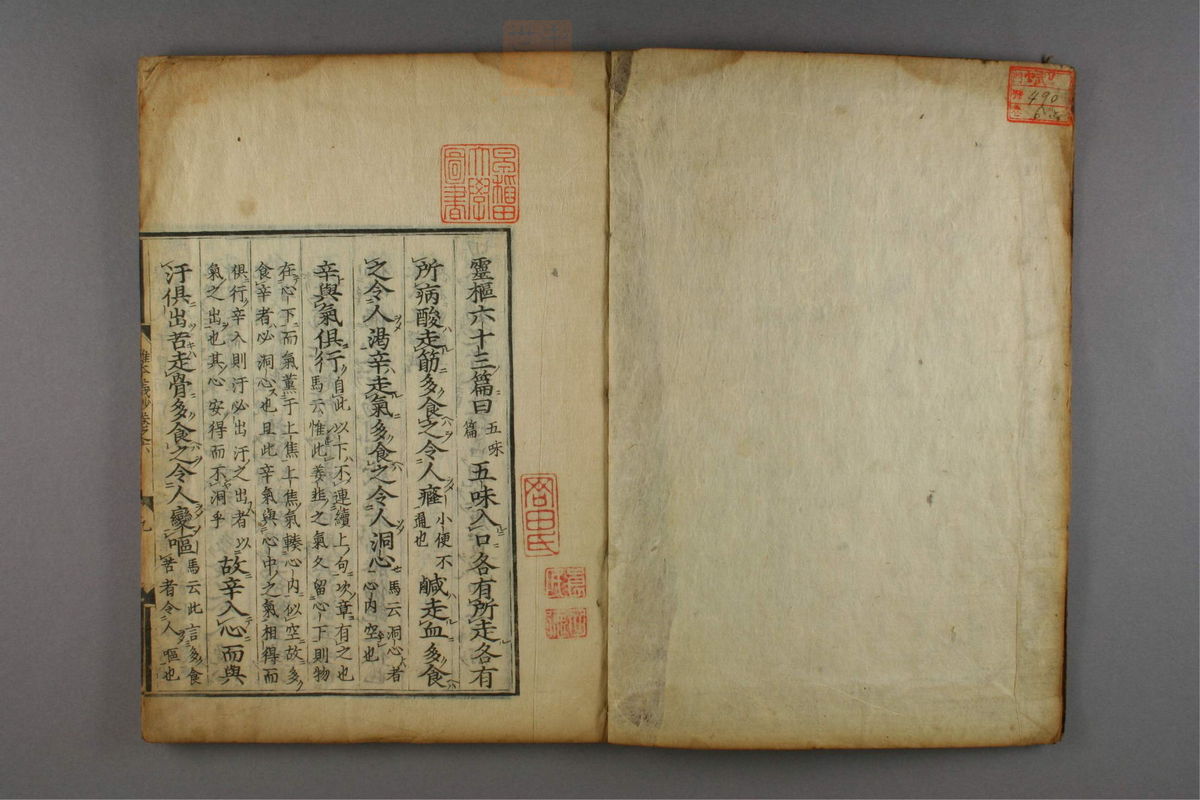 靈樞六十三篇曰 五味篇 五味入口各有所走各有
所病酸走筋多食之令人癃 小便不通也 鹹走血多食
之令人渴辛走氣多食之令人洞心 馬云洞心者心内空也
辛與氣俱行 自此以下不連續上句次章有之也
馬云惟此姜韭之氣久留心下則物
在心下而氣薫于上焦上焦氣轃心内似空故多
食辛者必洞心也且此辛氣與心中之氣相得而
俱行辛入則汗必出汗之出者以
氣之出也其心安得而不洞乎 故辛入心而與
汗俱出苦走骨多食之令人變嘔 馬云此言多食
苦者令人嘔也
九
早稲田大學圖書
490